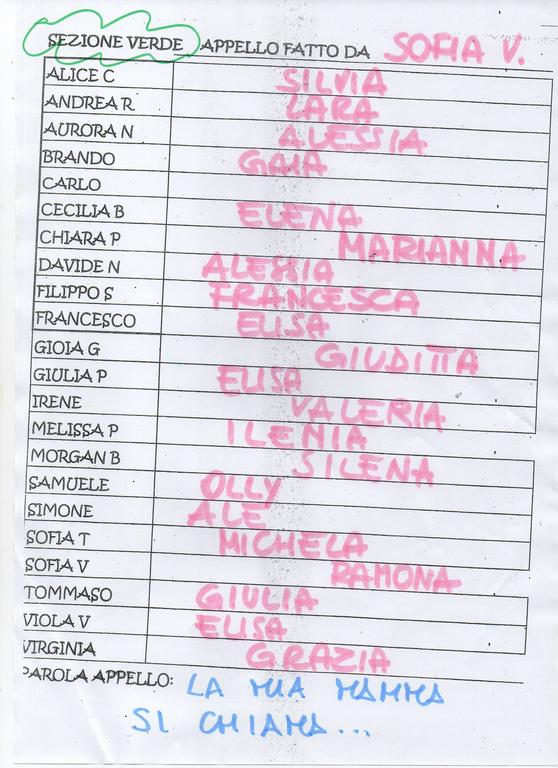 SEZIONE VERDE APPELLO FATTO DA SOFIA V.
ALICE C SILVIA
ANDREA R LARA
AURORA N ALESSIA
BRANDO GAIA
CARLO
CECILIA B ELENA
CHIARA P MARIANNA
DAVIDE N ALESSIA
FILIPPO S FRANCESCA
FRANCESCO ELISA
GIOIA G GIUDITTA
GIULIA P ELISA
IRENE VALERIA
MELISSA P ILENIA
MORGAN B SILENA
SAMUELE OLLY
SIMONE ALE
SOFIA T MICHELA
SOFIA V RAMONA
TOMMASO GIULIA
VIOLA V ELISA
VIRGINIA GRAZIA
PAROLA APPELLO: LA MIA MAMMA
SI CHIAMA...